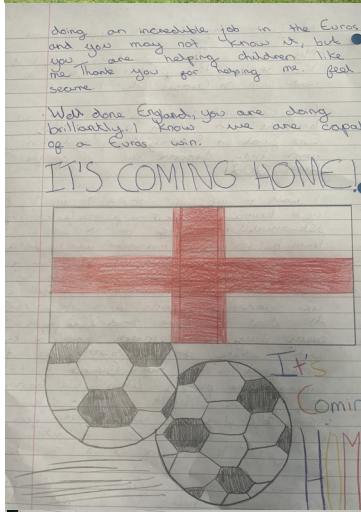 doing an incredible job in the Euros
and you may not know it, but
you are helping children like
me. Thank you for helping me feel
secure
Well done England, you are doing
brilliantly. I know we are capa
of a Euros win.
IT'S COMING HOME!
It's
Comin
HOM